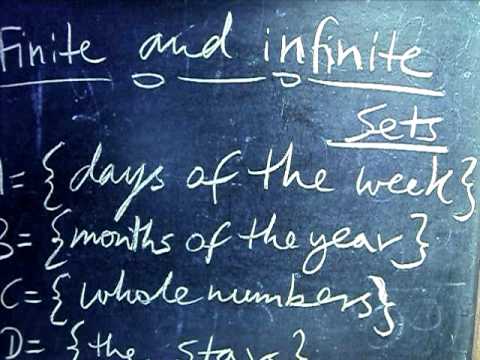 Finite and infinite
Sets
A = {days of the week}
B = {months of the year}
C = {whole numbers}
D = {the stars}